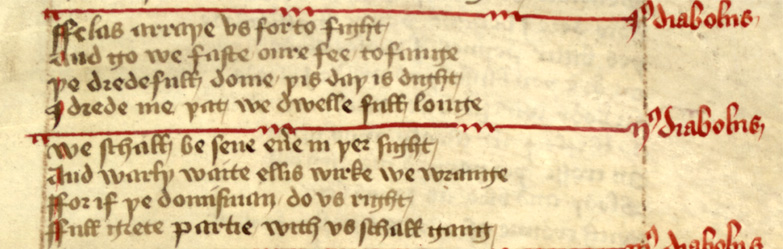 jus diabolus
ffelas arraye vs forto fight
And go we faste oure fee to fange
þe dredefull dome þis day is dight
I drede me þat we dwelle full longe
ijus diabolus
We schall be sene euere in þer sight
And warly waite ellis wirke we wrange
ffor if þe domisman do vs right
ffull grete partie with vs schall gang
diabolus